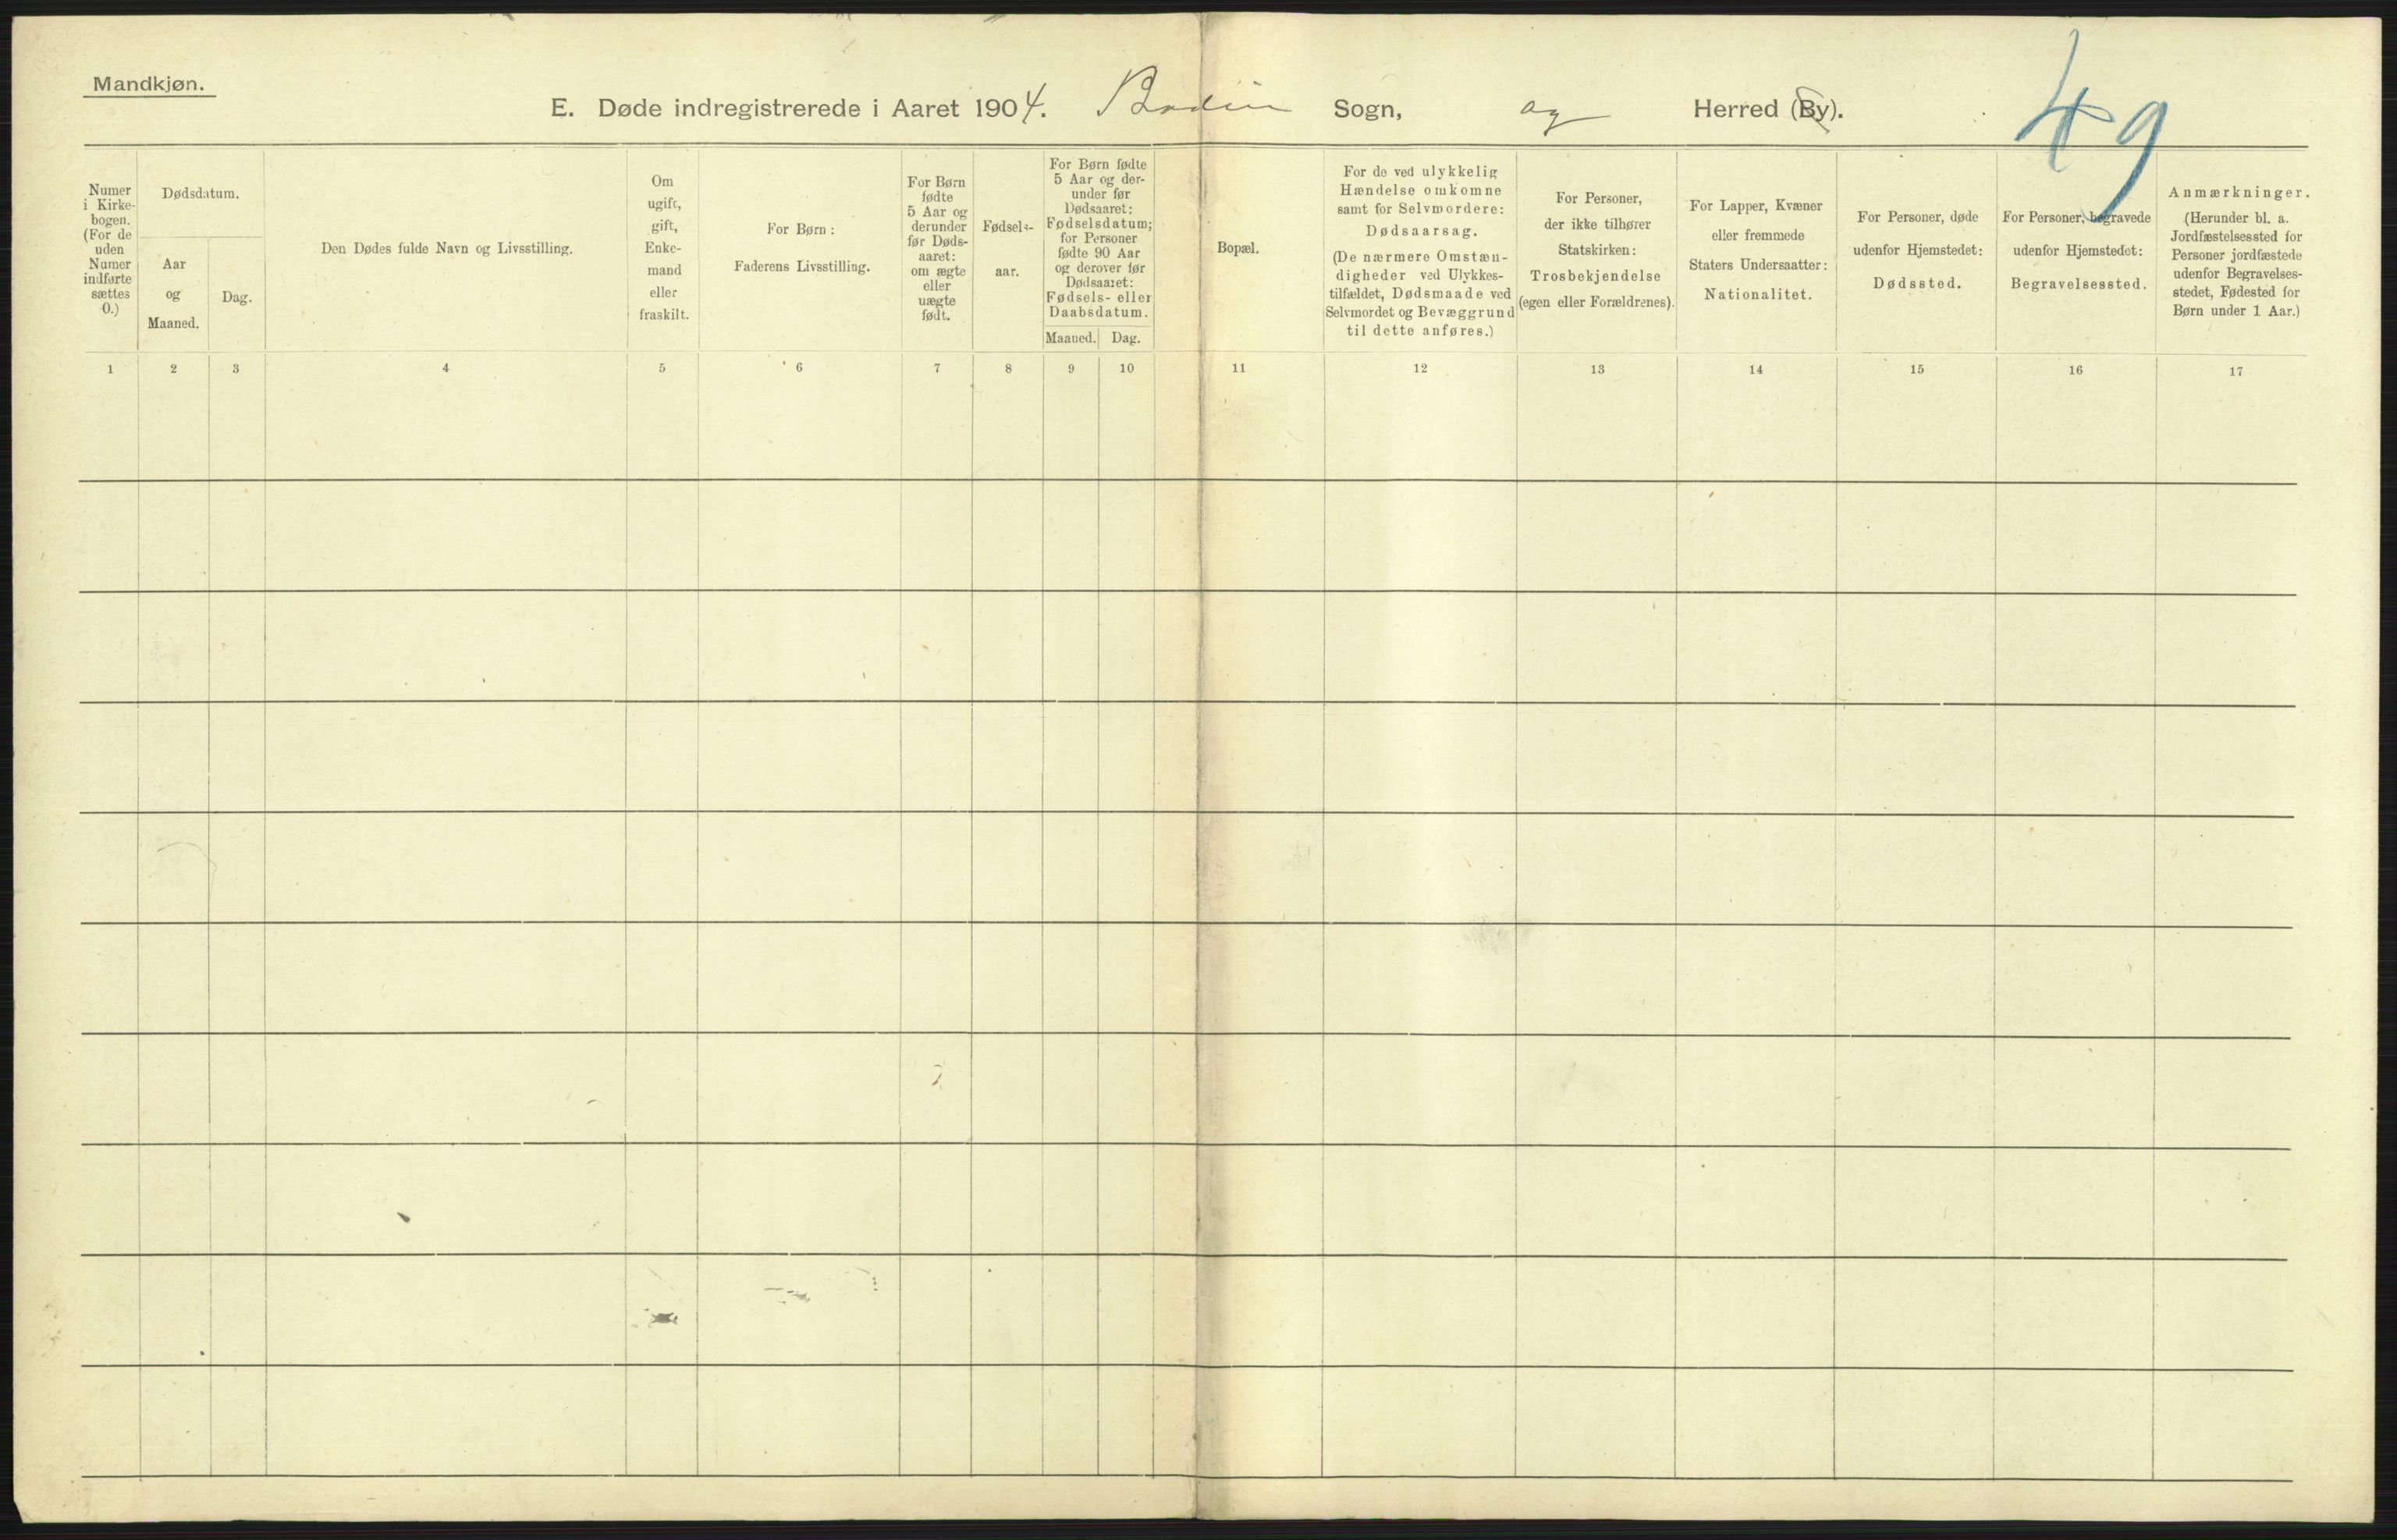 Mandkjøn.
49
E. Døde indregistrerede i Aaret 1904. Bodin Sogn, og Herred (By).
Numer
i Kirke-
bogen.
(For de
uden
Numer
indførte
sættes
0.)
Dødsdatum.
Aar
og
Maaned.
Dag.
Den Dødes fulde Navn og Livsstilling.
Om
ugift,
gift,
Enke-
mand
eller
fraskilt.
For Børn:
Faderens Livsstilling.
For Børn
fødte
5 Aar og
derunder
før Døds-
aaret:
om ægte
eller
uægte
født.
Fødsels-
aar.
For Børn fødte
5 Aar og der-
under før
Dødsaaret:
Fødselsdatum;
for Personer
fødte 90 Aar
og derover før
Dødsaaret:
Fødsels- eller
Daabsdatum.
Maaned. Dag.
Bopæl.
For de ved ulykkelig
Hændelse omkomne
samt for Selvmordere:
Dødsaarsag.
(De nærmere Omstæn-
digheder ved Ulykkes-
tilfældet, Dødsmaade ved
Selvmordet og Bevæggrund
til dette anføres.)
For Personer,
der ikke tilhører
Statskirken:
Trosbekjendelse
(egen eller Forældrenes).
For Lapper, Kvæner
eller fremmede
Staters Undersaatter:
Nationalitet.
For Personer, døde
udenfor Hjemstedet:
Dødssted.
For Personer, begravede
udenfor Hjemstedet:
Begravelsessted.
Anmærkninger.
(Herunder bl. a.
Jordfæstelsessted for
Personer jordfæstede
udenfor Begravelses-
stedet, Fødested for
Børn under 1 Aar.)
1 2 3 4 5 6 7 8 9 10 11 12 13 14 15 16 17